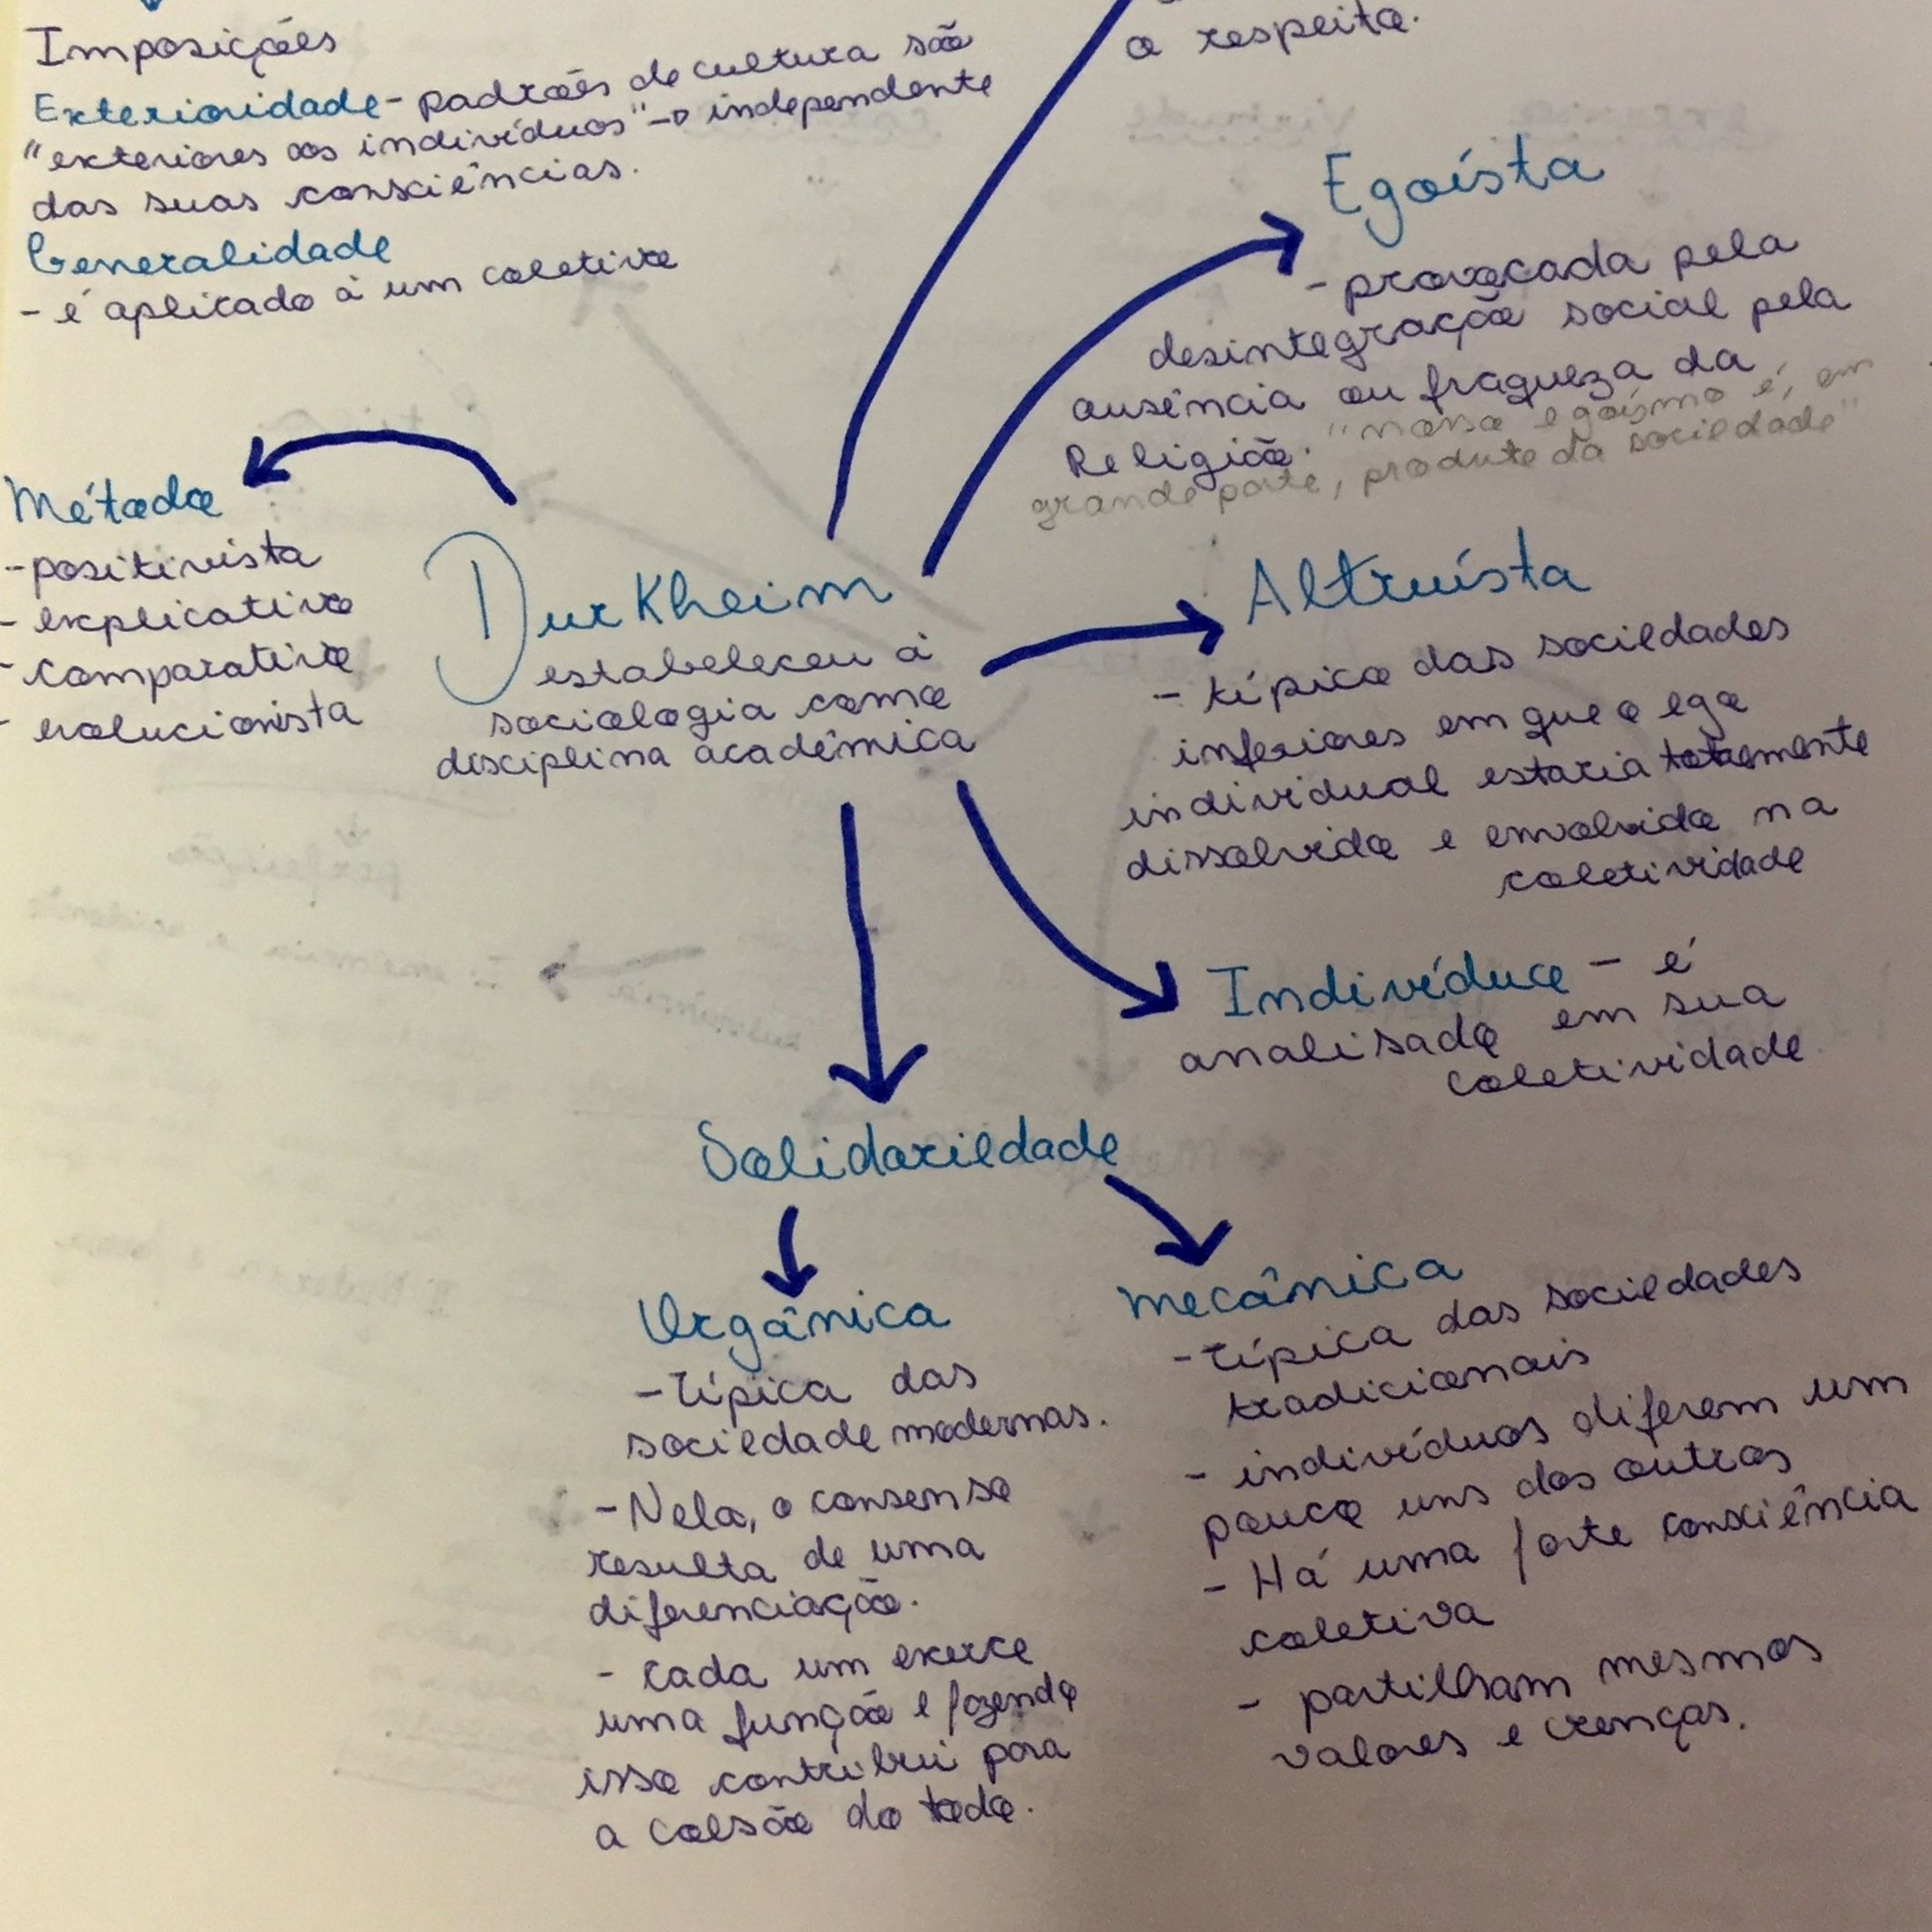 Imposições
Exterioridade - padrões de cultura são
"exteriores aos indivíduos" → independente
das suas consciências.
Generalidade
- é aplicado à um coletivo
o respeito.
Egoísta
- provocada pela
desintegração social pela
ausência ou fraqueza da
Religião. "nosso egoísmo é, em
grande parte, produto da sociedade"
Método
- positivista
- explicativo
- comparativo
- evolucionista
Durkheim
estabeleceu à
sociologia como
disciplina acadêmica
Altruísta
- típico das sociedades
inferiores em que o ego
individual estaria totamente
dissolvido e envolvido na
coletividade
Indivíduo - é
analisado em sua
coletividade
Solidariedade
Orgânica
- Típica das
sociedade modernas.
- Nela, o consenso
resulta de uma
diferenciação.
- Cada um exerce
uma função e fazendo
isso contribui para
a coesão do todo.
Mecânica
- Típica das sociedades
tradicionais
- indivíduos diferem um
pouco uns dos outros
- Há uma forte consciência
coletiva
- partilham mesmos
valores e crenças.